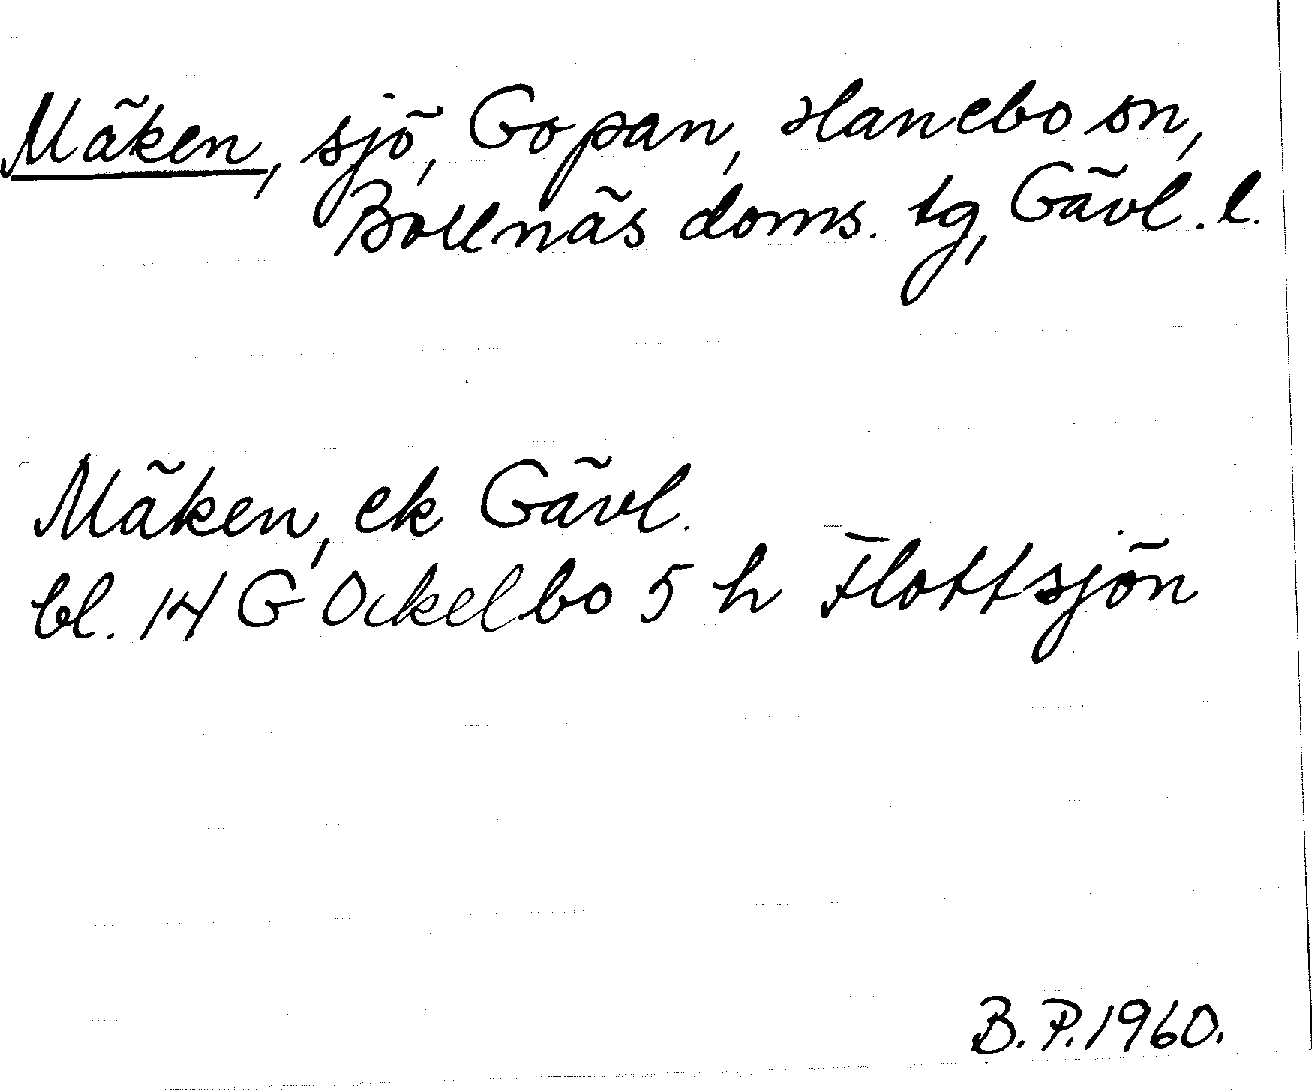 Mäken, sjö, Gopan, Hanebo sn,
Bollnäs doms. tg, Gävl. l.
Mäken, ek Gävl.
bl. 14 G Ockelbo 5 h Flottsjön
B.P.1960.